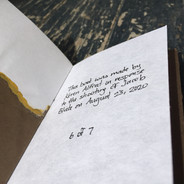 This book was made by
Karen Allred in response
to the shooting of Jacob
Blake on August 23, 2020
6 of 7